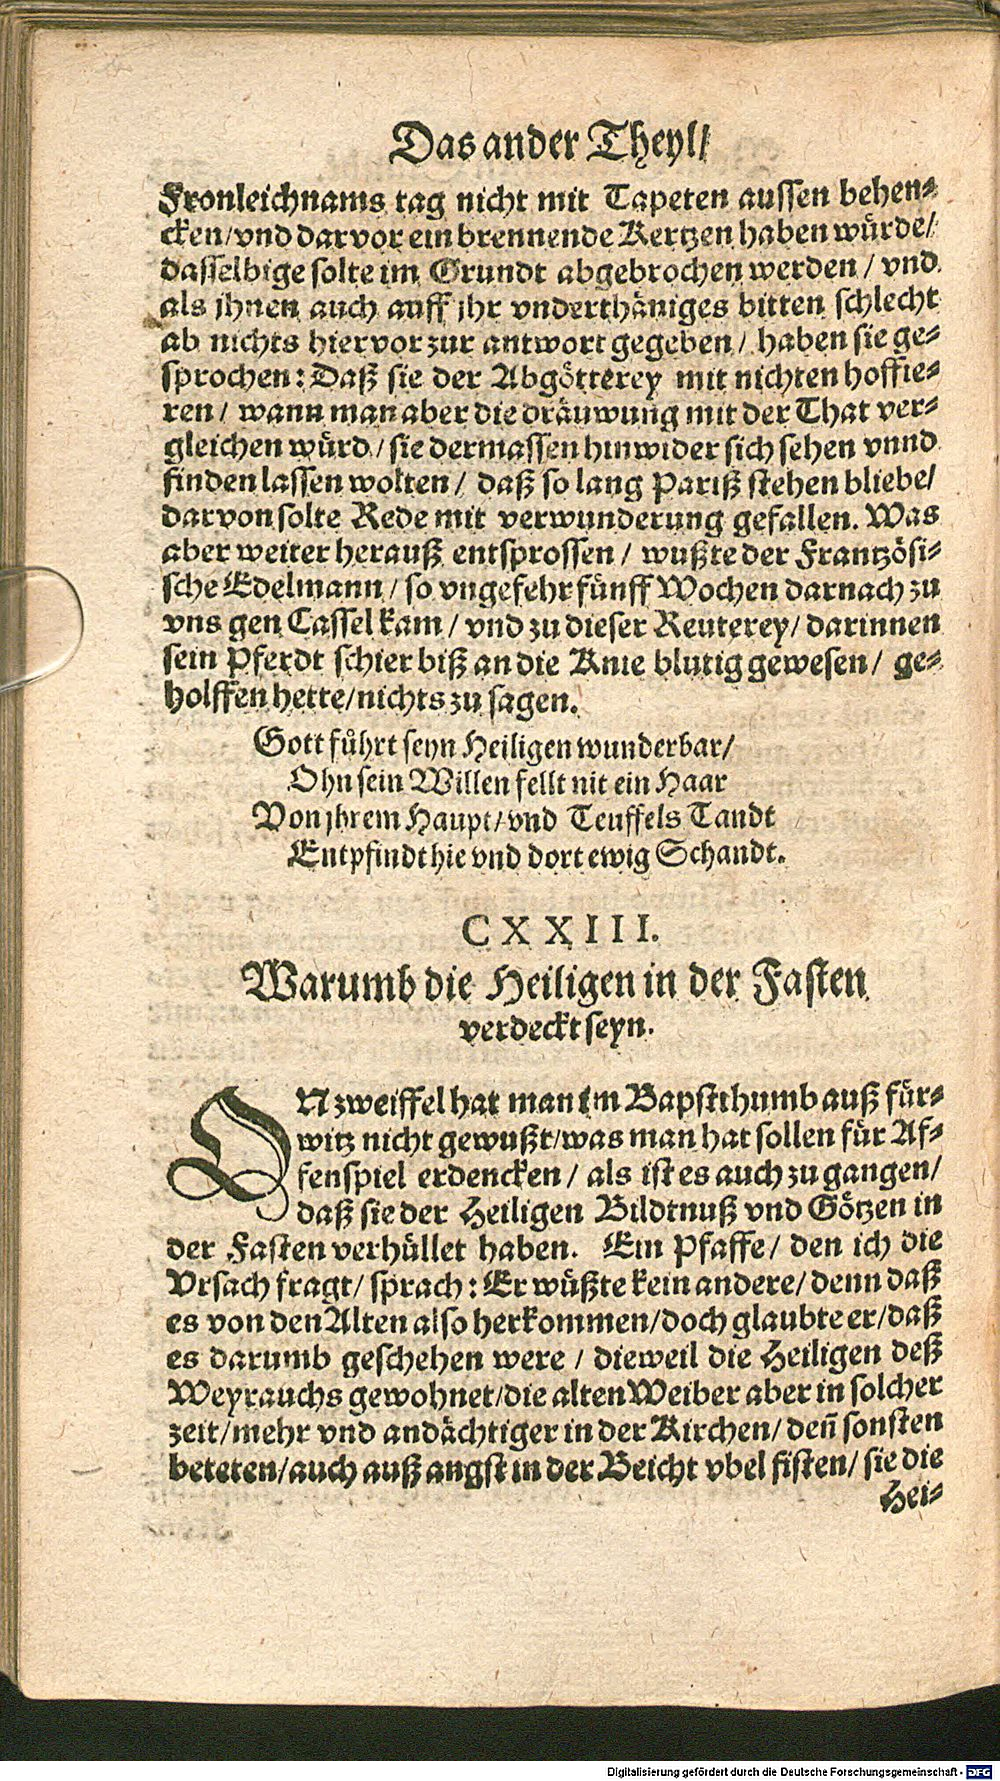 Das ander Theyl/
Fronleichnams tag nicht mit Tapeten aussen behen-
cken/vnd darvor ein brennende Kertzen haben würde/
dasselbige solte im Grundt abgebrochen werden / vnd
als jhnen auch auff jhr vnderthäniges bitten schlecht
ab nichts hiervor zur antwort gegeben / haben sie ge-
sprochen: Daß sie der Abgötterey mit nichten hoffie-
ren / wann man aber die dräuwung mit der That ver-
gleichen würd / sie dermassen hinwider sich sehen vnnd
finden lassen wolten / daß so lang Pariß stehen bliebe/
darvon solte Rede mit verwunderung gefallen. Was
aber weiter herauß entsprossen / wußte der Frantzösi-
sche Edelmann / so vngefehr fünff Wochen darnach zu
vns gen Cassel kam / vnd zu dieser Reuterey / darinnen
sein Pferdt schier biß an die Knie blutig gewesen / ge-
holffen hette/nichts zu sagen.
Gott führt seyn Heiligen wunderbar/
Ohn sein Willen fellt nit ein Haar
Von jhrem Haupt/vnd Teuffels Tandt
Entpfindt hie vnd dort ewig Schandt.
CXXIII.
Warumb die Heiligen in der Fasten
verdeckt seyn.
ON zweiffel hat man im Bapstthumb auß für-
witz nicht gewußt/was man hat sollen für Af-
fenspiel erdencken / als ist es auch zu gangen/
daß sie der Heiligen Bildtnuß vnd Götzen in
der Fasten verhüllet haben. Ein Pfaffe / den ich die
Vrsach fragt / sprach: Er wüßte kein andere / denn daß
es von den Alten also herkommen/doch glaubte er/daß
es darumb geschehen were / dieweil die Heiligen deß
Weyrauchs gewohnet/die alten Weiber aber in solcher
zeit/mehr vnd andächtiger in der Kirchen/deñ sonsten
beteten/auch auß angst in der Beicht vbel fisten/sie die
Hei-
Digitalisierung gefördert durch die Deutsche Forschungsgemeinschaft - DFG